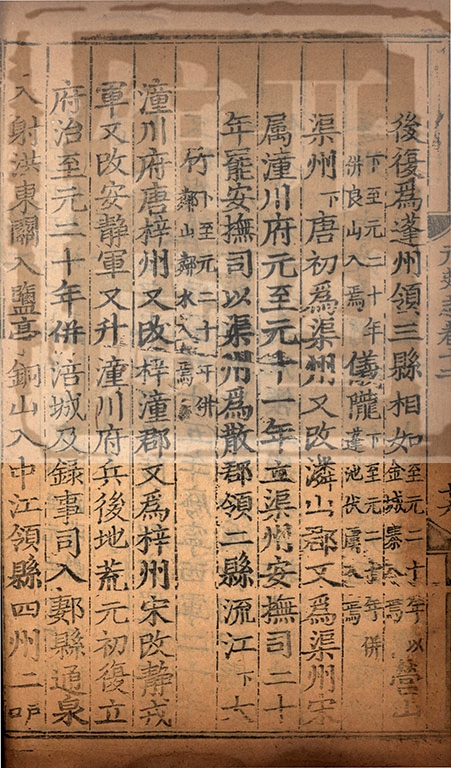 後復爲蓬州領三縣相如至元二十年以金城寨入焉營山
下至元二十年併良山入焉儀隴下至元二十年併蓬池伏虞入焉
渠州下唐初爲渠州又改潾山郡又爲渠州宋
属潼川府元至元十一年立渠州安撫司二十
年罷安撫司以渠州爲散郡領二縣流江下大
竹下至元二十年併鄰山鄰水入焉
潼川府唐梓州又改梓潼郡又爲梓州宋改静戎
軍又改安静軍又升潼川府兵後地荒元初復立
府治至元二十年併涪城及録事司入郪縣通泉
入射洪東關入鹽亭銅山入中江領縣四州二户